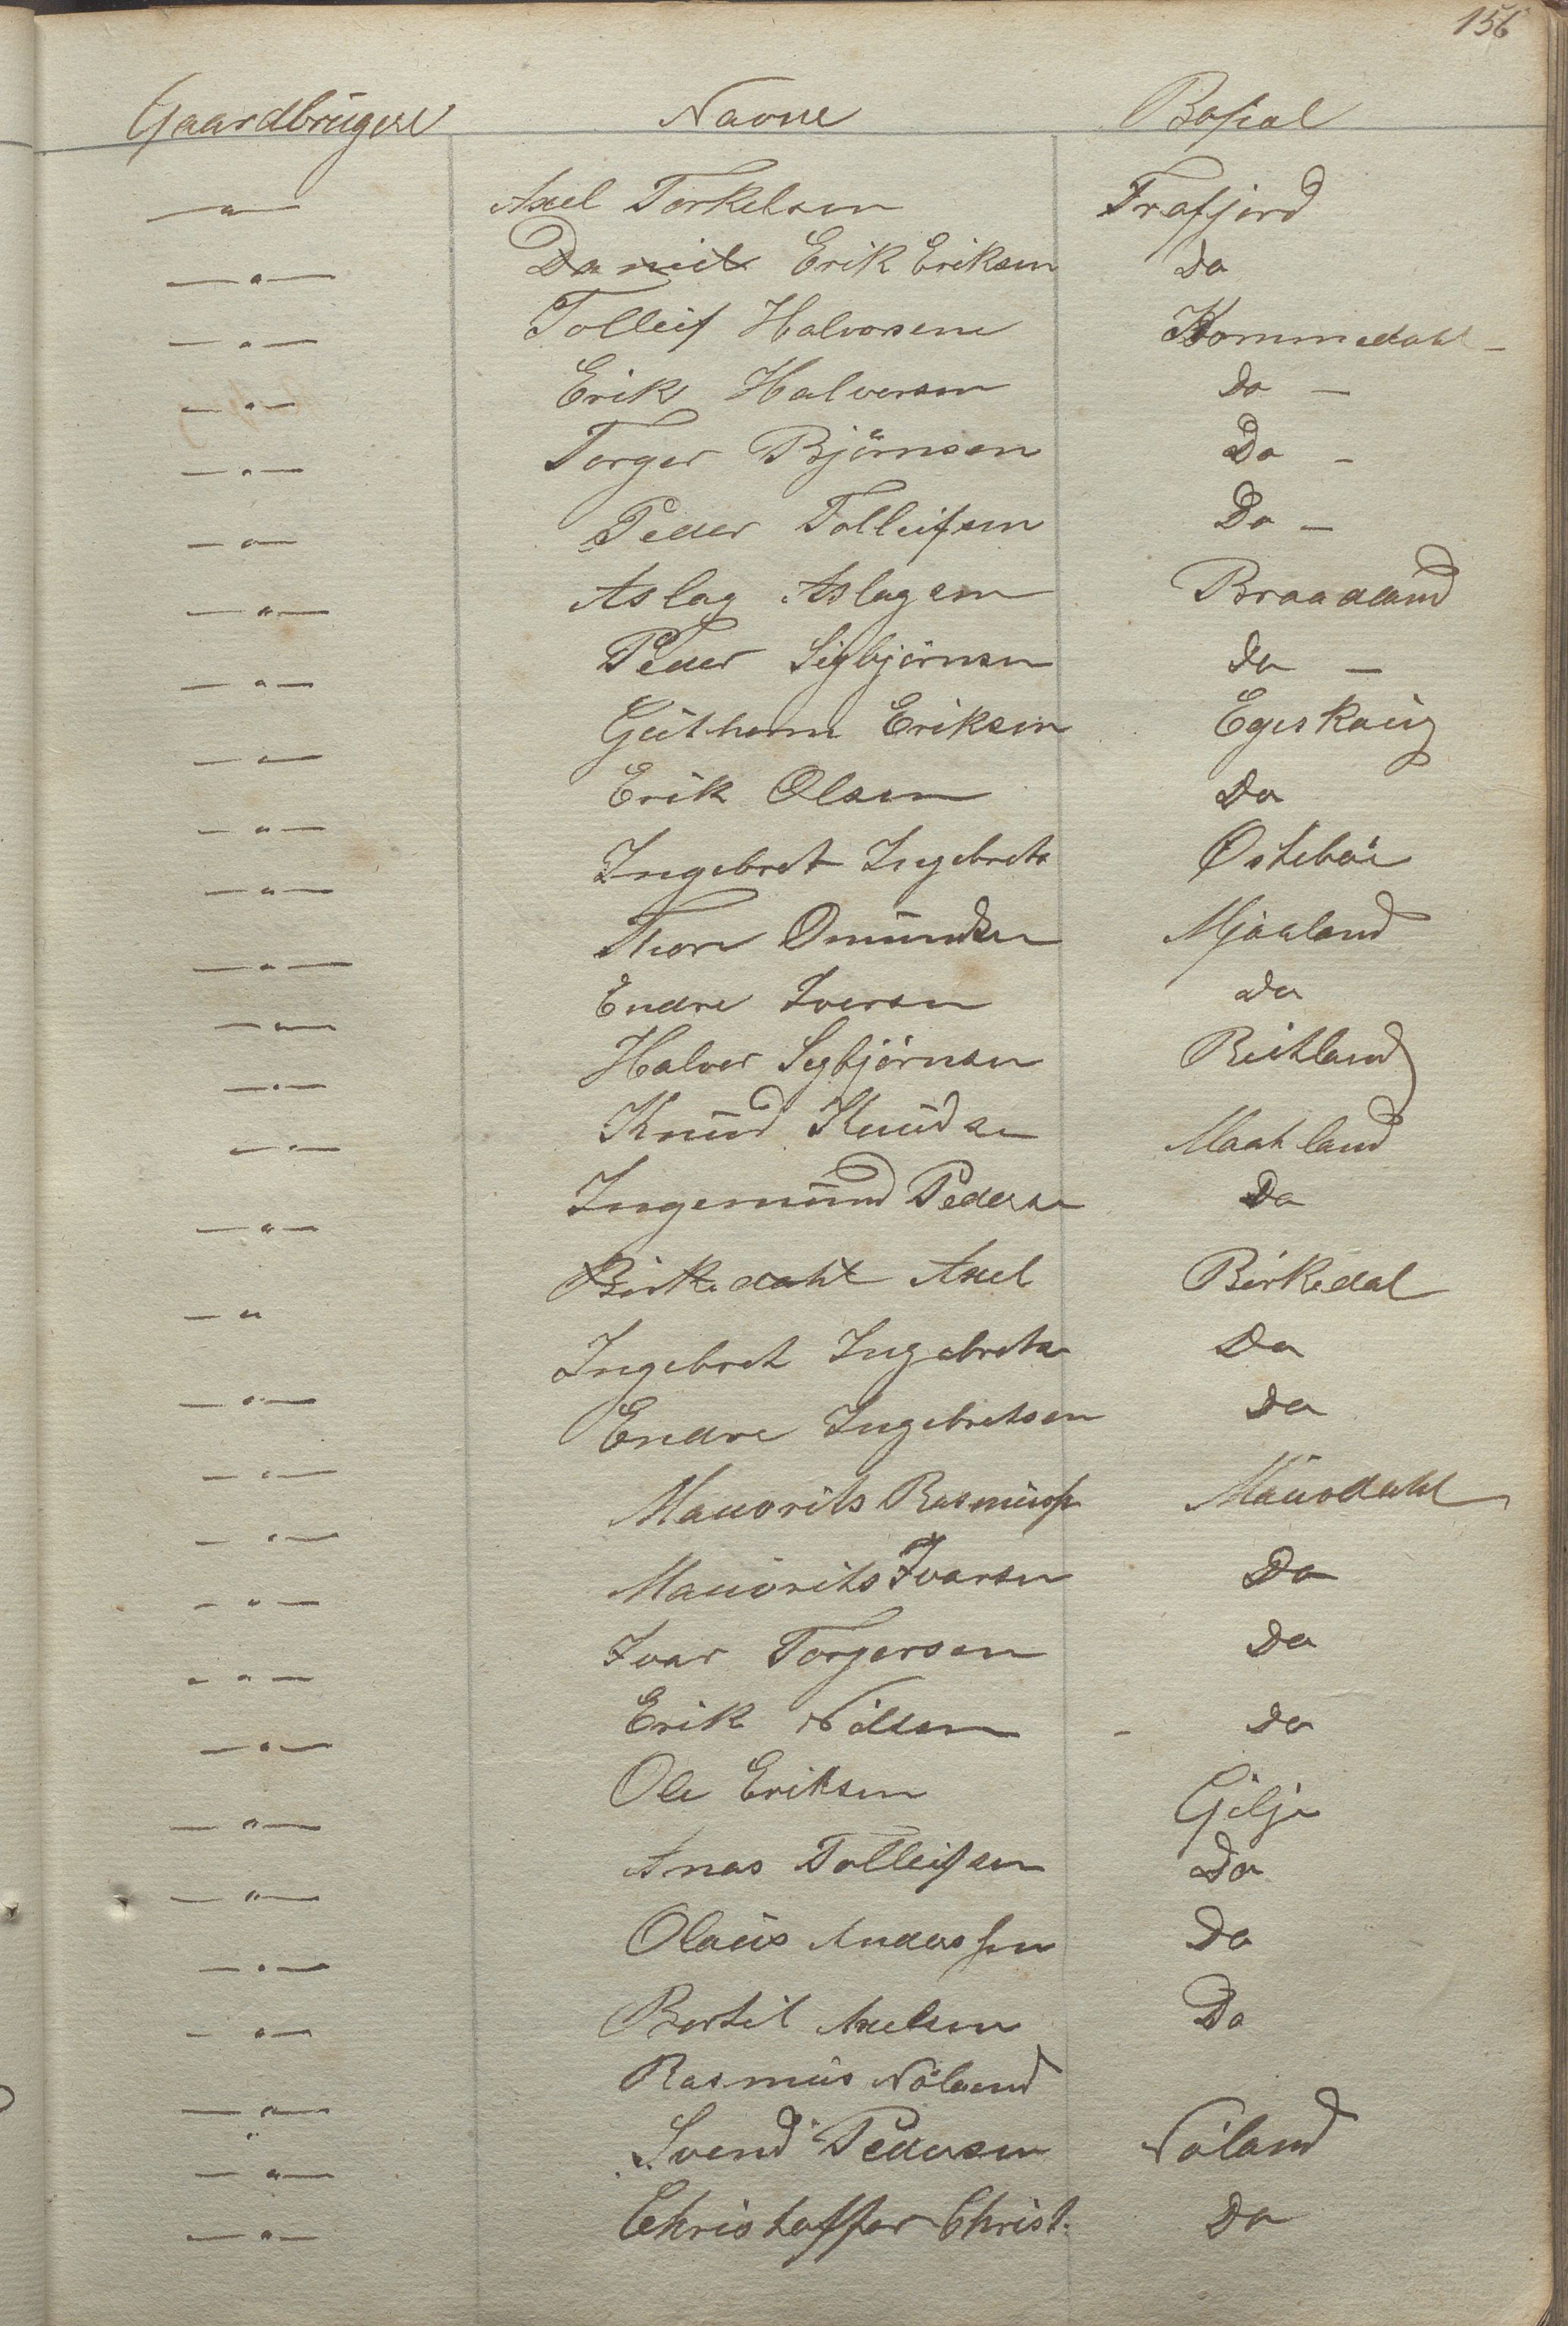 156
Gaardbrugere Navne Bopæl
—"— Axel Torkelsen Frafjord
—"— Daniel Erik Eriksen Do
—"— Tolleif Halvorsen Kommedahl —
—"— Erik Halvorsen Do —
—"— Torger Björnsen Do —
—"— Peder Tolleifsen Do —
—"— Aslag Aslagsen Braadland
—"— Peder Sigbjörnsen Do —
—"— Guthorm Eriksen Egeskoug
—"— Erik Olsen Do
—"— Ingebret Ingebrets Östeböe
—"— Thore Omundsen Mjaaland
—"— Endre Iversen Do
—"— Halvor Segbjörnsen
—"— Knud Knudsen Maahland
—"— Ingemund Pedersen Do
—" Birkedahl Axel Birkedal
—"— Ingebret Ingebretsen Do
—"— Endre Ingebretsen Do
—"— Mauorits Rasmuss Maudahl
—"— Mauorits Ivarsen Do
—"— Ivar Torgersen Do
—"— Erik Nilsen - Do
—"— Ole Eriksen Gilje
—"— Anas Tolleifsen Do
—"— Olaus Anderssen Do
—"— Bertil Axelsen Do
—"— Rasmus Nöland
—"— Svend Pedersen Nöland
—"— Christoffer Christ. Do